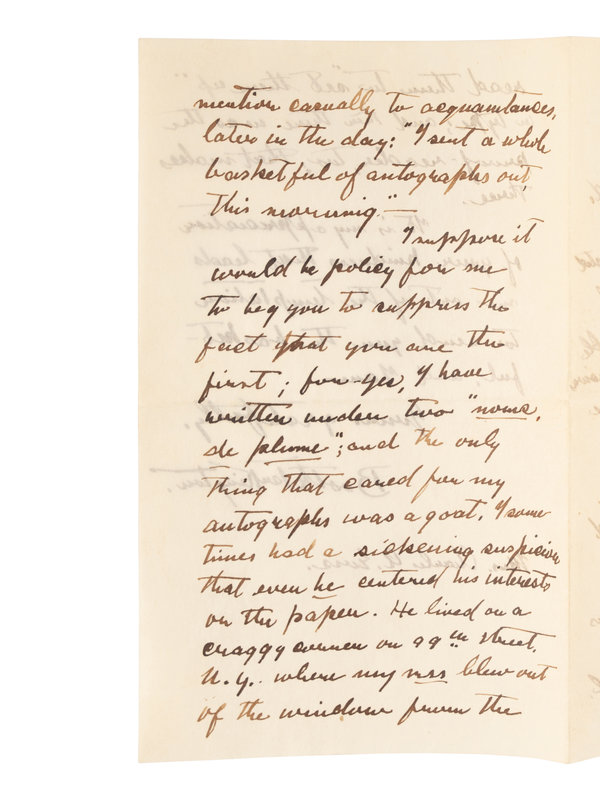 mention casually to acquaintances,
later in the day: "I sent a whole
basketful of autographs out,
this morning."—
I suppose it
would be policy for me
to beg you to suppress the
fact that you are the
first; for—yes, I have
written under two "noms,
de plume"; and the only
thing that cared for my
autographs was a goat. I some
times had a sickening suspicion
that even he centered his interests
on the paper. He lived on a
craggy corner on 99th street,
N.Y. where my mss blew out
of the window from the